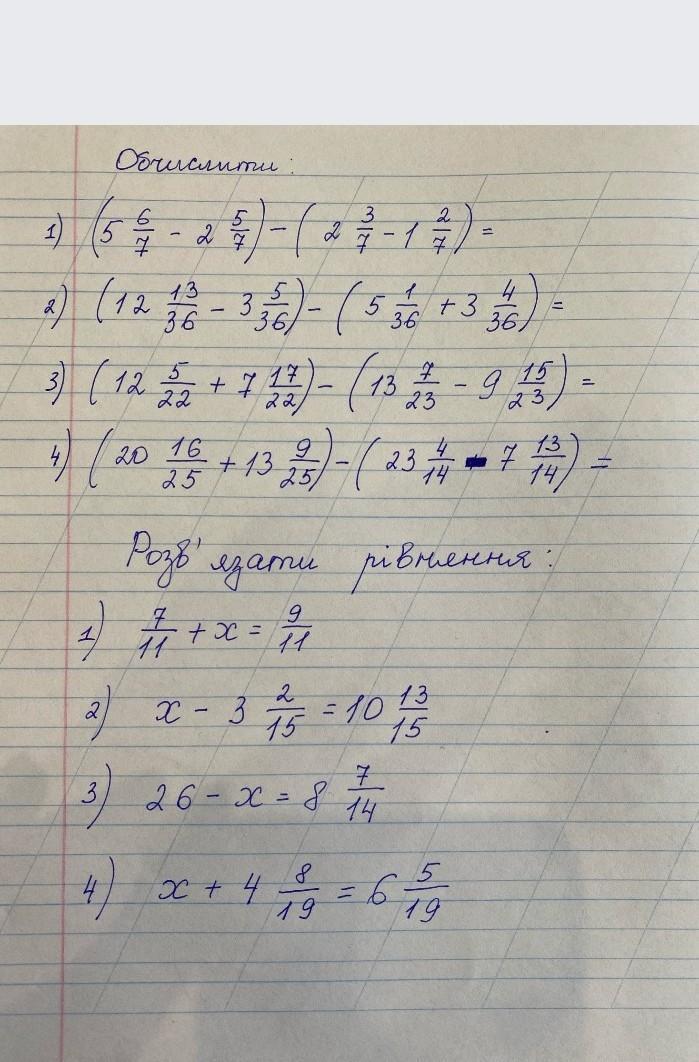 Обчислити:
1) (5 6/7 - 2 5/7) - (2 3/7 - 1 2/7) =
2) (12 13/36 - 3 5/36) - (5 1/36 + 3 4/36) =
3) (12 5/22 + 7 17/22) - (13 7/23 - 9 15/23) =
4) (20 16/25 + 13 9/25) - (23 4/14 - 7 13/14) =
Розв'язати рівняння:
1) 7/11 + x = 9/11
2) x - 3 2/15 = 10 13/15
3) 26 - x = 8 7/14
4) x + 4 8/19 = 6 5/19